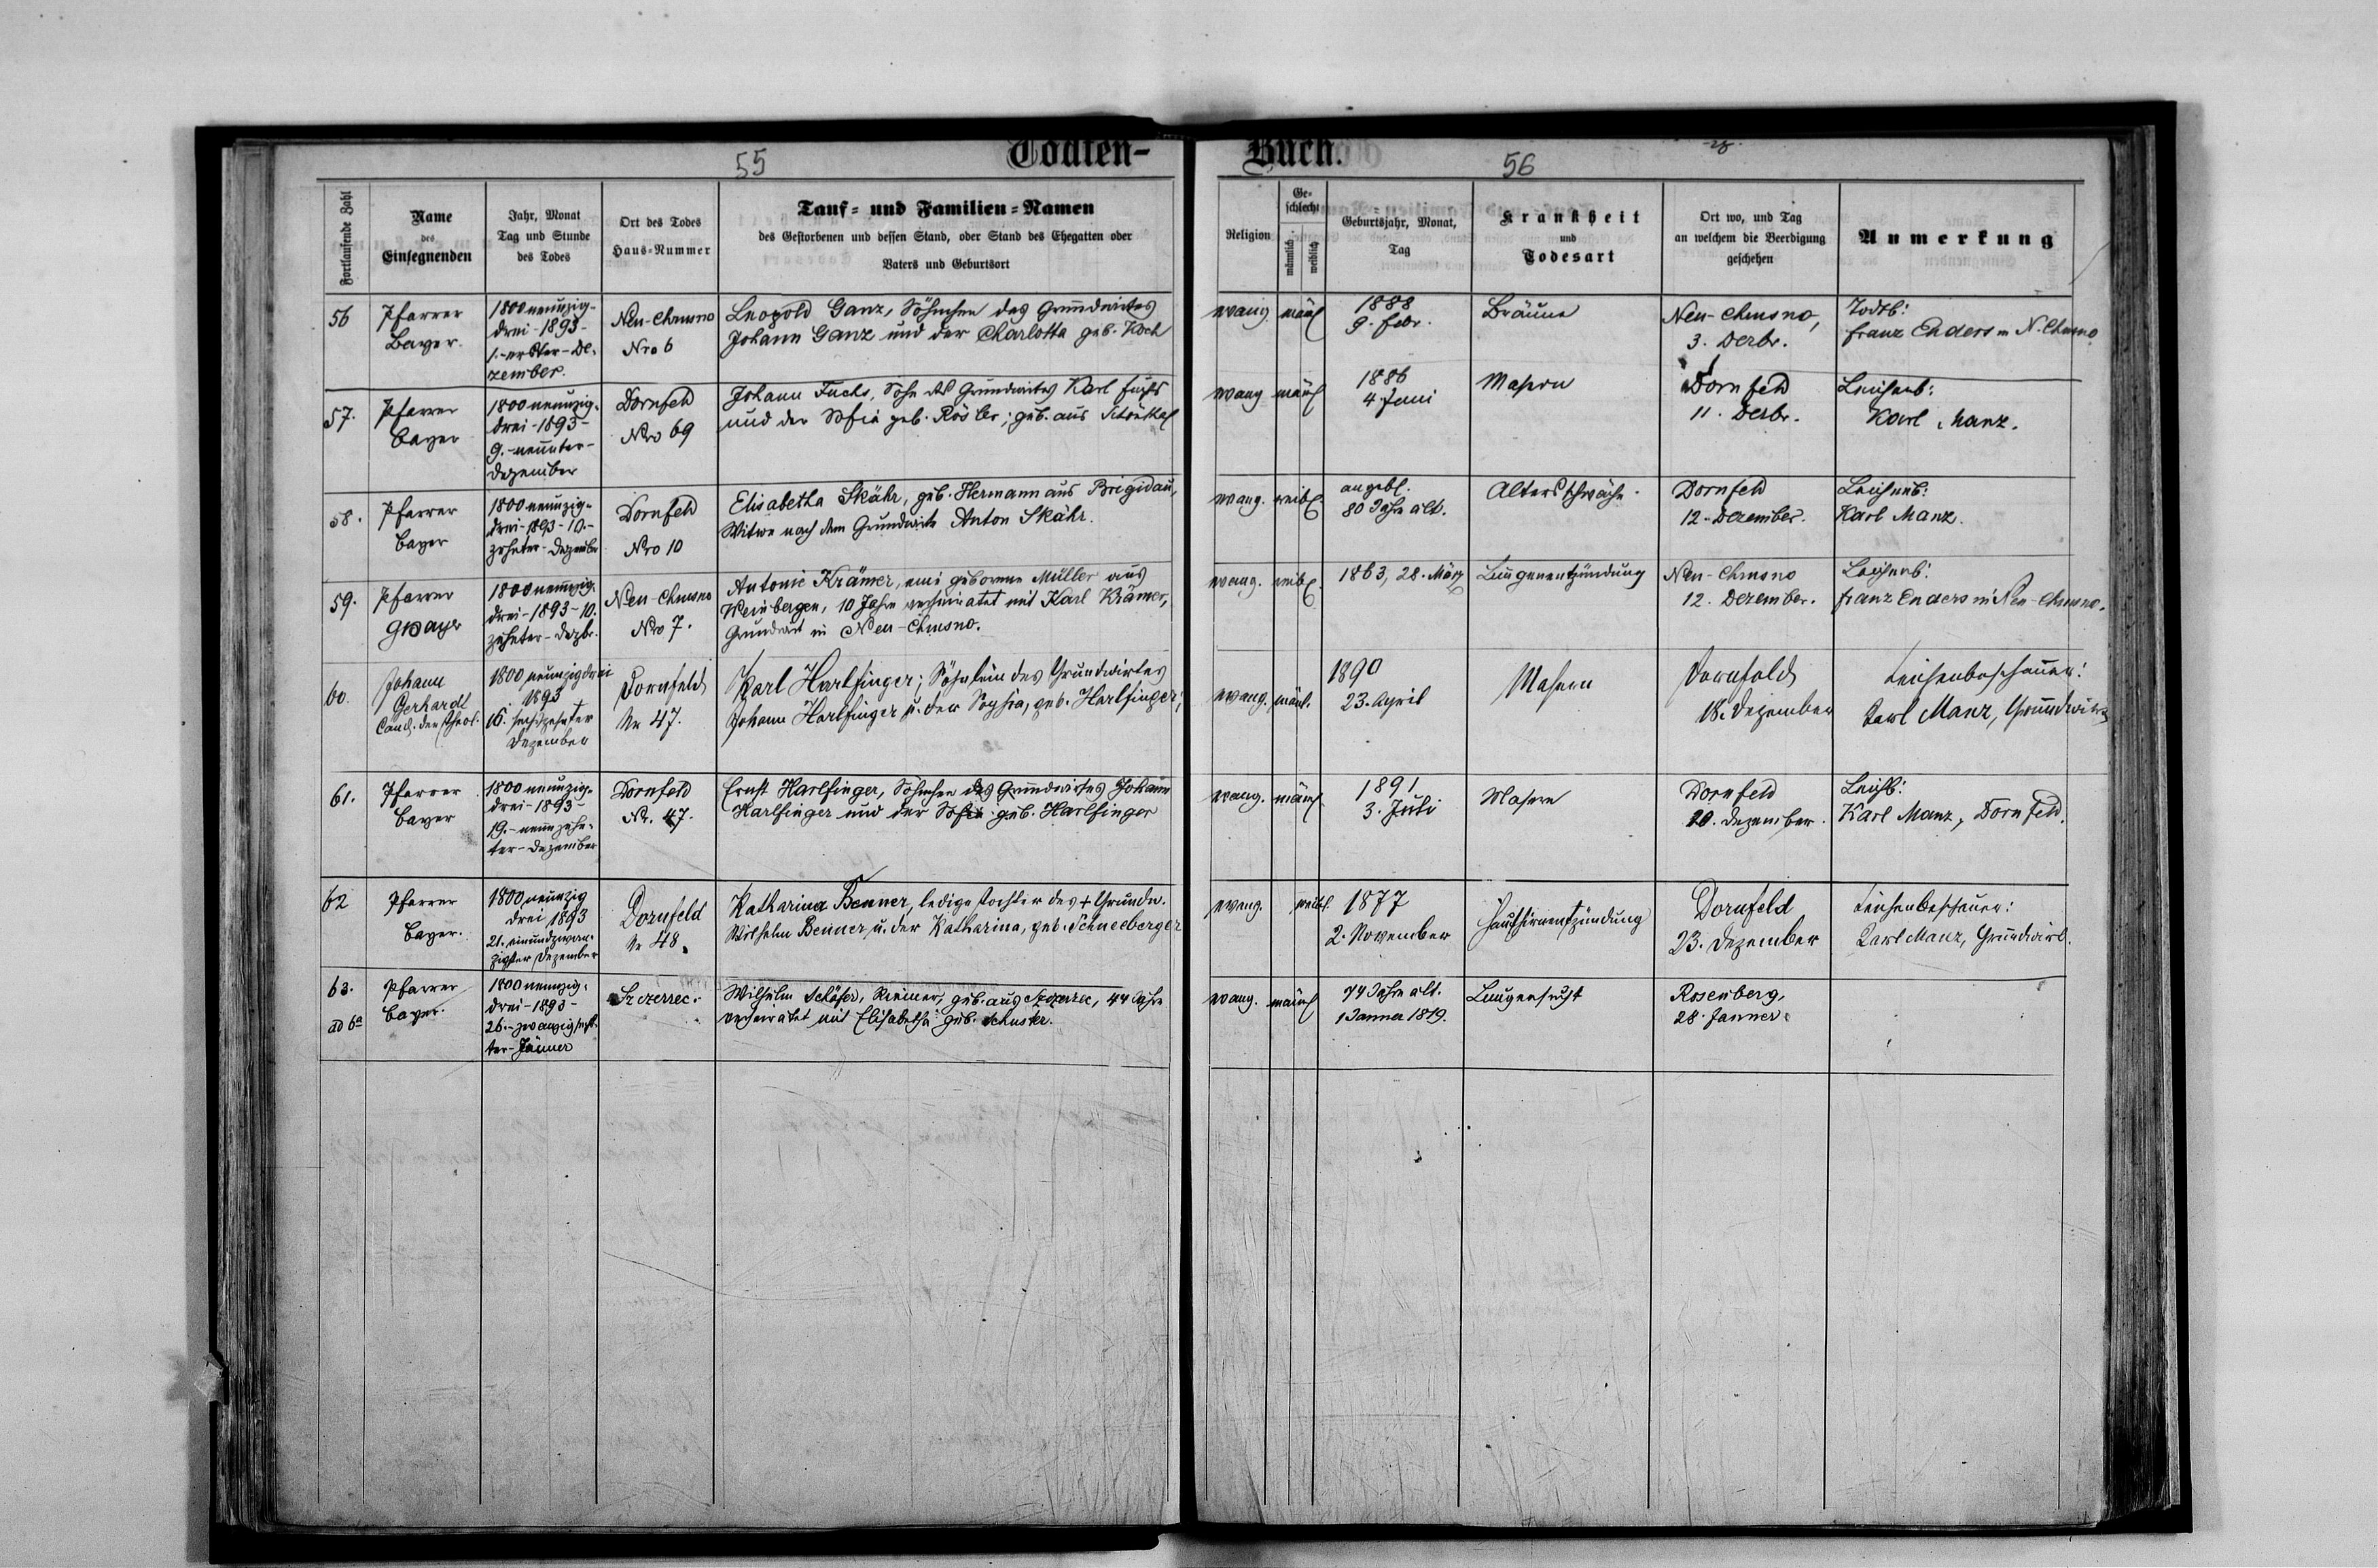 55
Todten-
Buch.
56
Fortlaufende Zahl
Name
des
Einsegnenden
Jahr, Monat
Tag und Stunde
des Todes
Ort des Todes
Haus-Nummer
Tauf- und Familien-Namen
des Gestorbenen und dessen Stand, oder Stand des Ehegatten oder
Vaters und Geburtsort
Religion
Ge-
schlecht
männlich
weiblich
Geburtsjahr, Monat,
Tag
Krankheit
und
Todesart
Ort wo, und Tag
an welchem die Beerdigung
geschehen
Anmerkung
56
Pfarrer
Bayer.
1800 neunzig-
drei-1893-
1.-erster-De-
zember.
Neu-Chrusno
Nro 6
Leopold Ganz, Söhnchen des Grundwirtes
Johann Ganz und der Charlotta geb. Koch
evang.
männl
1888
9. Febr.
Bräune
Neu-Chrusno,
3. Dezbr.
Todtb:
Franz Enders in N. Chrusno
57.
Pfarrer
Bayer
1800 neunzig-
drei-1893-
9.-neunter-
Dezember
Dornfeld
Nro 69
Johann Fuchs, Sohn des Grundwirtes Karl Fuchs
und der Sofia geb. Rösler; geb. aus Schönthal
evang
männl
1886
4. Juni
Masern
Dornfeld
11. Dezbr.
Leichenb:
Karl Manz.
58.
Pfarrer
Bayer
1800 neunzig-
drei-1893-10.-
zehnter-Dezember
Dornfeld
Nro 10
Elisabetha Skähr, geb. Hermann aus Brigidau,
Witwe nach dem Grundwirte Anton Skähr.
evang.
weibl
angebl.
80 Jahre alt.
Altersschwäche.
Dornfeld
12. Dezember.
Leichenb:
Karl Manz.
59.
Pfarrer
Bayer
1800 neunzig-
drei-1893-10.
zehnter-Dezbr.
Neu-Chrusno
Nro 7.
Antonie Krämer, eine geborene Müller aus
Weinbergen, 10 Jahre verheiratet mit Karl Krämer,
Grundwirt in Neu-Chrusno.
evang.
weibl.
1863, 28. März
Lungenentzündung
Neu-Chrusno
12. Dezember.
Leichenb:
Franz Enders in Neu-Chrusno.
60.
Johann
Gerhardt
Cand. der Theol.
1800 neunzigdrei
1893
16. sechszehnter
Dezember
Dornfeld
Nr 47.
Karl Harlfinger; Söhnlein des Grundwirtes
Johann Harlfinger u. der Sophia, geb. Harlfinger;
evang.
männl.
1890
23. April
Masern
Dornfeld
18. Dezember
Leichenbeschauer:
Karl Manz, Grundwirt
61.
Pfarrer
Bayer
1800 neunzig-
drei-1893-
19.-neunzehn-
ter-Dezember
Dornfeld
Nr. 47.
Ernst Harlfinger, Söhnchen des Grundwirtes Johann
Harlfinger und der Sofia geb. Harlfinger
evang.
männl
1891
3. Juli
Masern
Dornfeld
20. Dezember.
Leichb:
Karl Manz, Dornfeld.
62
Pfarrer
Bayer.
1800 neunzig
drei 1893
21. einundzwan-
zigster Dezember
Dornfeld
Nr 48.
Katharina Benner, ledige Tochter des + Grundw.
Wilhelm Benner u. der Katharina, geb. Schneeberger
evang.
weibl.
1877
2. November
Dornfeld
23. Dezember
Leichenbeschauer:
Karl Manz, Grundwirt.
63.
ad 6a
Pfarrer
Bayer.
1800 neunzig-
drei-1893-
26.-zwanzigsechs-
ter-Jänner
Szczerzec.
Wilhelm Schäfer, Riemer, geb. aus Szczerzec, 44 Jahre
verheiratet mit Elisabetha geb. Schuster.
evang.
männl
74 Jahre alt.
1 Jänner 1819.
Lungensucht
Rosenberg,
28. Jänner.